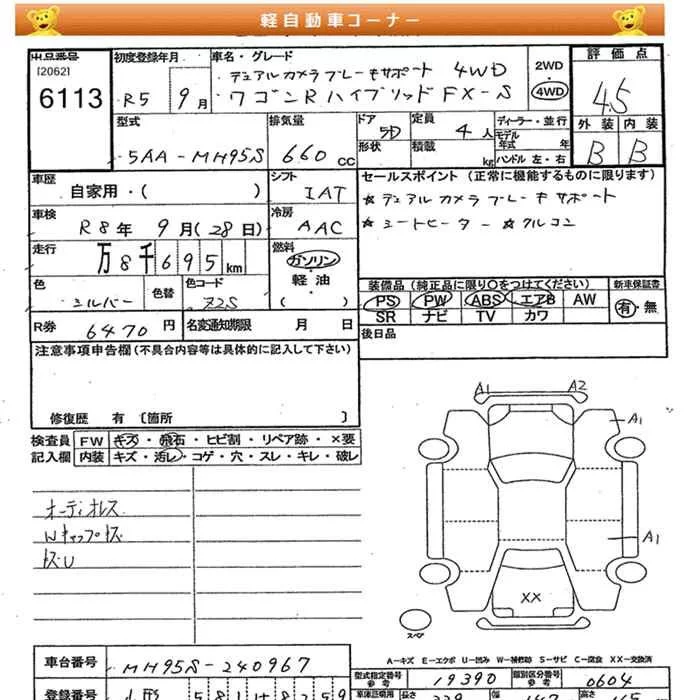 軽自動車コーナー
出品番号
[2062]
6113
初度登録年月
R5 9月
車名・グレード
デュアルカメラブレーキサポート 4WD
ワゴンRハイブリッドFX-S
2WD
4WD
評価点
4.5
外装 内装
B B
型式
5AA-MH95S
排気量
660cc
ドア
5D
形状
定員
4人
積載
kg
ディーラー・並行
モデル年式 年式
ハンドル 左・右
車歴
自家用・( )
シフト
IAT
車検
R8年 9月(28日)
冷房
AAC
走行
万8千695km
燃料
ガソリン・軽油
( )
色
シルバー
色替
色コード
Z2S
R券
6470円
名変通知期限 月 日
セールスポイント(正常に機能するものに限ります)
★デュアルカメラブレーキサポート
★シートヒーター ★クルコン
装備品(純正品に限り○をつけてください)
PS PW ABS エアB AW
SR ナビ TV カワ
新車保証書
有・無
後日品
注意事項申告欄(不具合内容等は具体的に記入して下さい)
修復歴 有〔箇所 〕
検査員 FW キズ・飛石・ヒビ割・リペア跡・×要
記入欄 内装 キズ・汚レ・コゲ・穴・スレ・キレ・破レ
オーディオレス
Wキャップキズ
キズU
A1 A2
A1
A1
XX
スペア
A-キズ E-エクボ U-凹み W-補修跡 S-サビ C-腐食 XX-交換済
車台番号
MH95S-240967
型式指定番号 参考
19390
類別区分番号 参考
0604
登録番号
長さ
幅
高さ